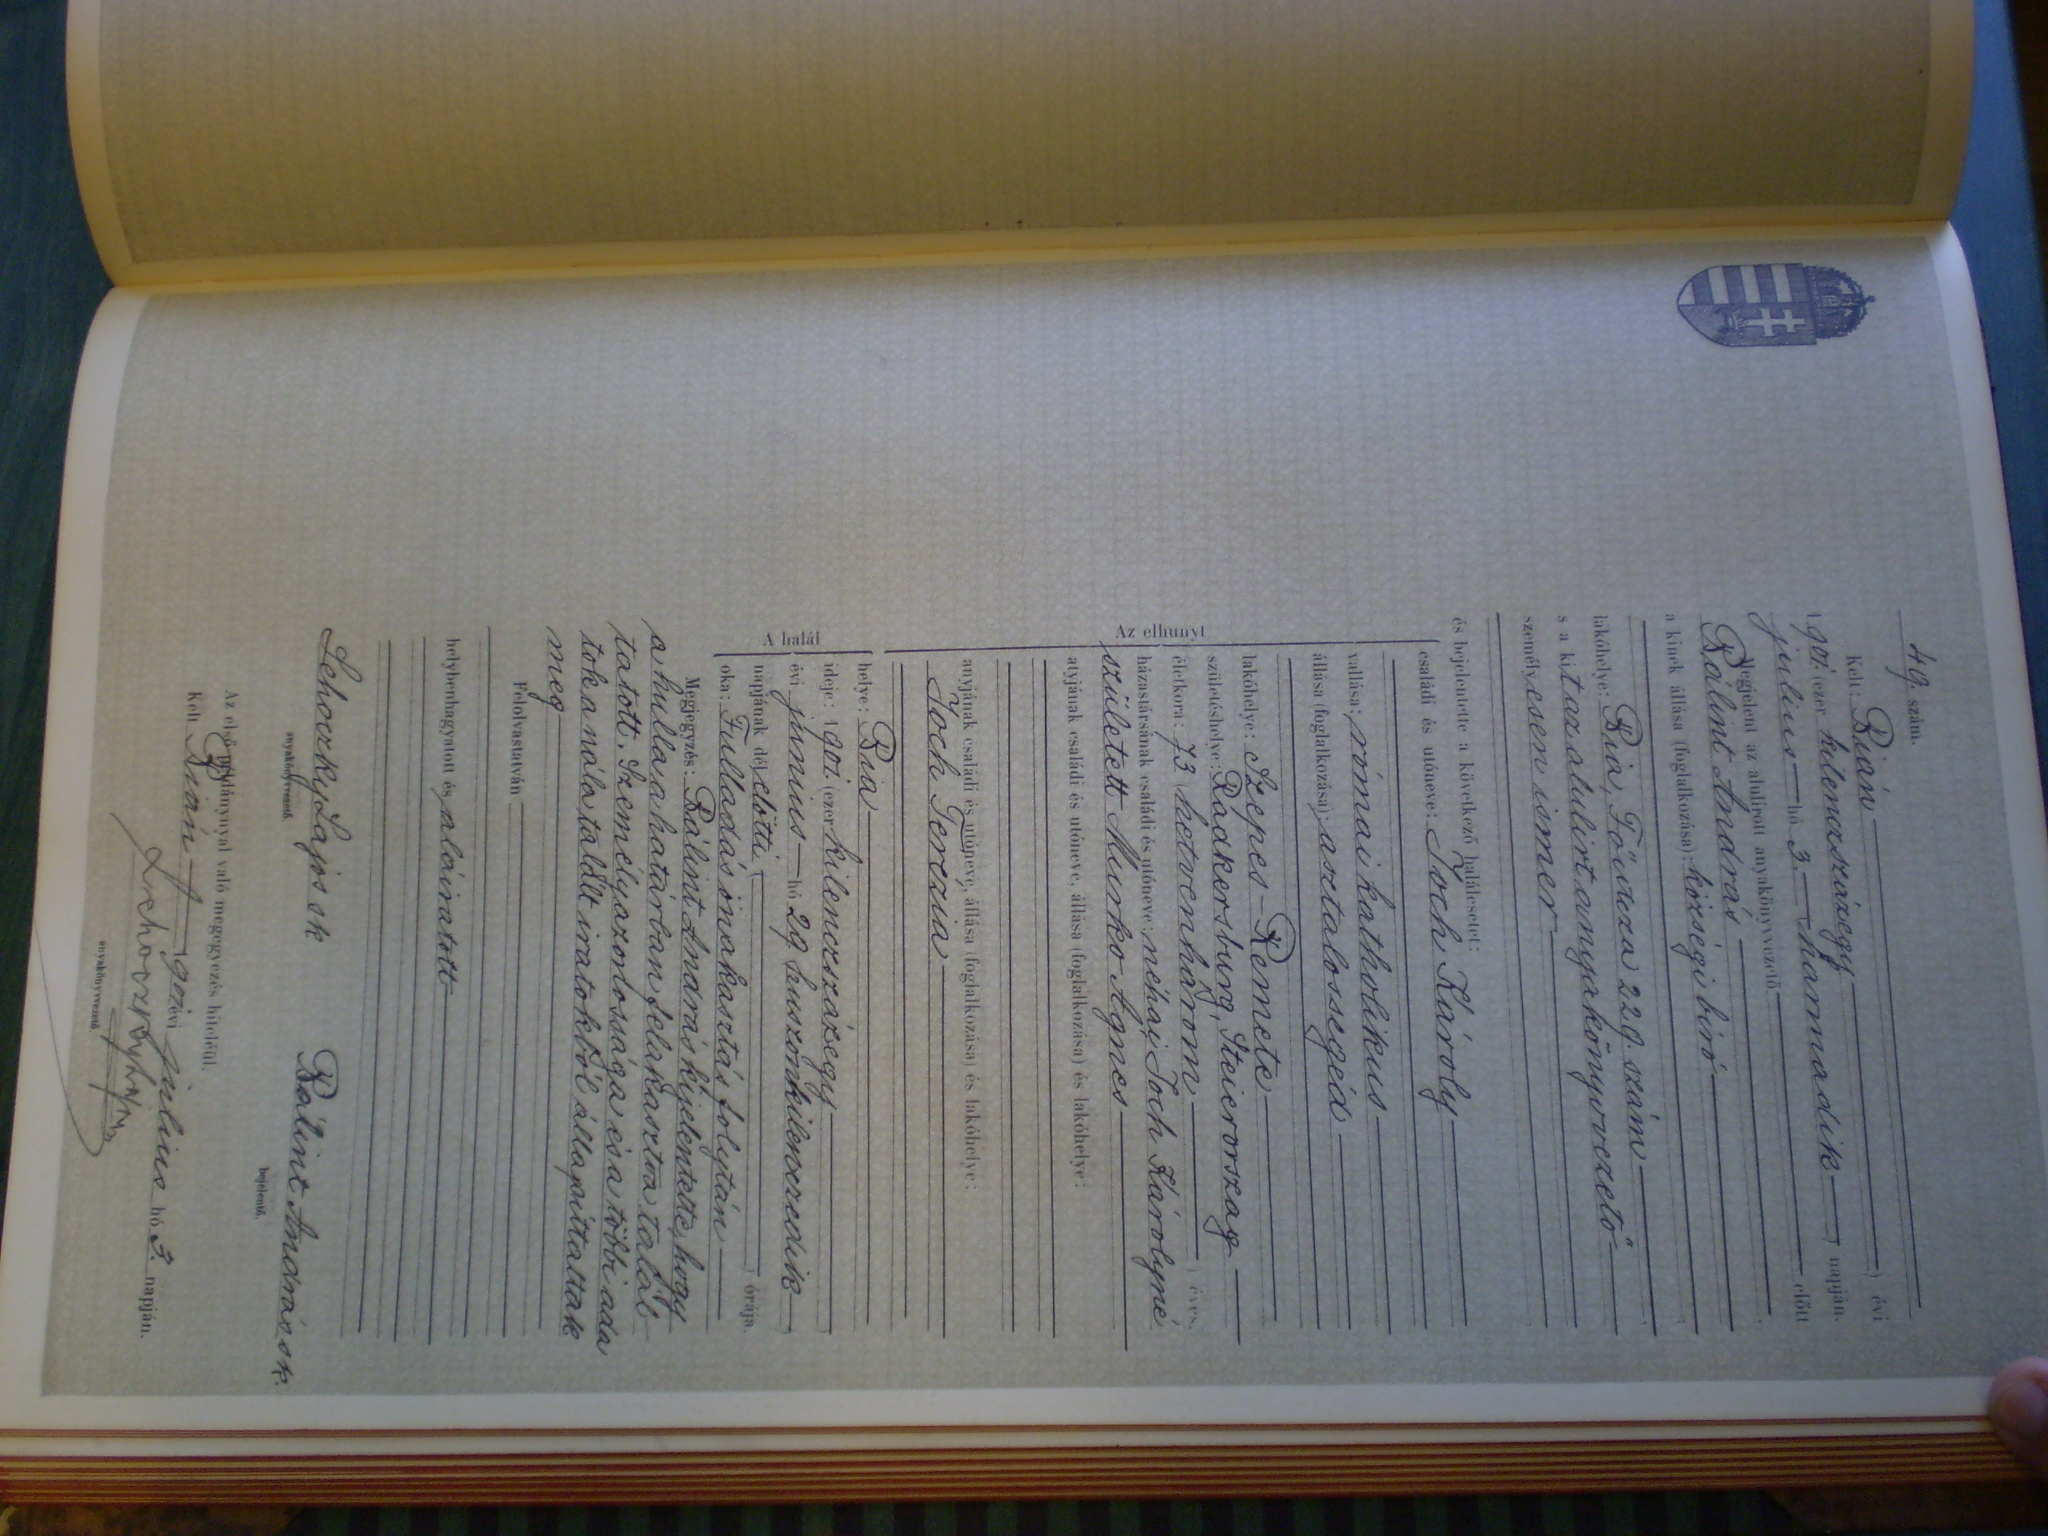 49. szám.
Kelt: Bián ) évi
1901. (ezer kilenczszázegy ) napján.
julius hó 3. harmadik
Megjelent az alulirott anyakönyvvezető előtt
Bálint András
a kinek állása (foglalkozása): községi biró
lakóhelye: Bia, Fő utcza 229. szám
s a kit az alulirt anyakönyvvezető
személyesen ismer
és bejelentette a következő halálesetet:
Az elhunyt
családi és utóneve: Toch Károly
vallása: római katholikus
állása (foglalkozása): asztalossegéd
lakóhelye: Szepes-Remete
születéshelye: Radkersburg, Steierorszag
életkora: 73 hetvenhárom ) éves,
házastársának családi és utóneve: néhai Toch Károlyné
született Murko Agnes
atyjának családi és utóneve, állása (foglalkozása) és lakóhelye:
anyjának családi és utóneve, állása (foglalkozása) és lakóhelye:
Toch Terezia
A halál
helye: Bia
ideje: 1901. (ezer kilenczszázegy )
évi junius hó 29 huszonkilenczedik )
napjának délelőtti, ( ) órája,
oka: Fulladás önakasztás folytán
Megjegyzés: Bálint András kijelentette, hogy
a hulla a határban felakasztva talál
tatott. Személyazonossága és a többi ada
tok a nála talált iratokból állapittattak
meg
Felolvastatván
helybenhagyatott és aláiratott
Lehoczky Lajos sk Bálint András sk.
anyakönyvvezető. bejelentő.
Az első példánynyal való megegyezés hiteléül.
Kelt Bián 1901 évi julius hó 3. napján.
Lehoczky Lajos
anyakönyvvezető